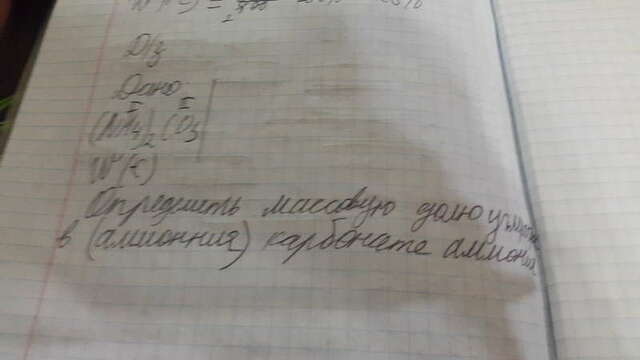 Д/з
Дано
I II
(NH4)2 CO3
W (C)
Определить массовую долю углерода
в (аммонния) карбонате аммония